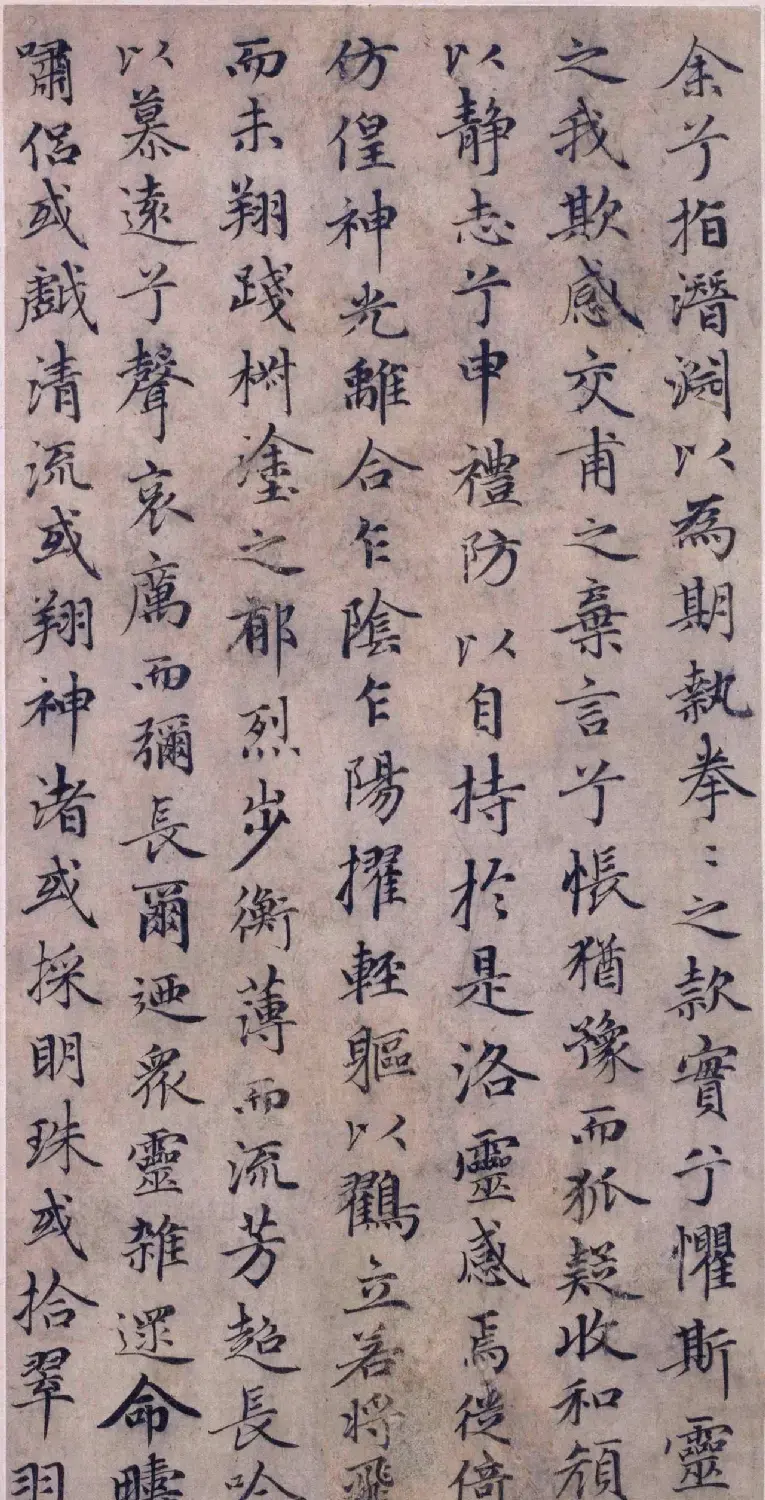 余兮指潛淵以為期執拳〻之款實兮懼斯靈
之我欺感交甫之棄言兮悵猶豫而狐疑收和顏
以静志兮申禮防以自持於是洛靈感焉徙倚
仿偟神光離合乍陰乍陽擢輕軀以鶴立若将飛
而未翔踐椒塗之郁烈步衡薄而流芳超長吟
以慕遠兮聲哀厲而彌長爾迺衆靈雜遝命疇
嘯侶或戲清流或翔神渚或採明珠或拾翠羽